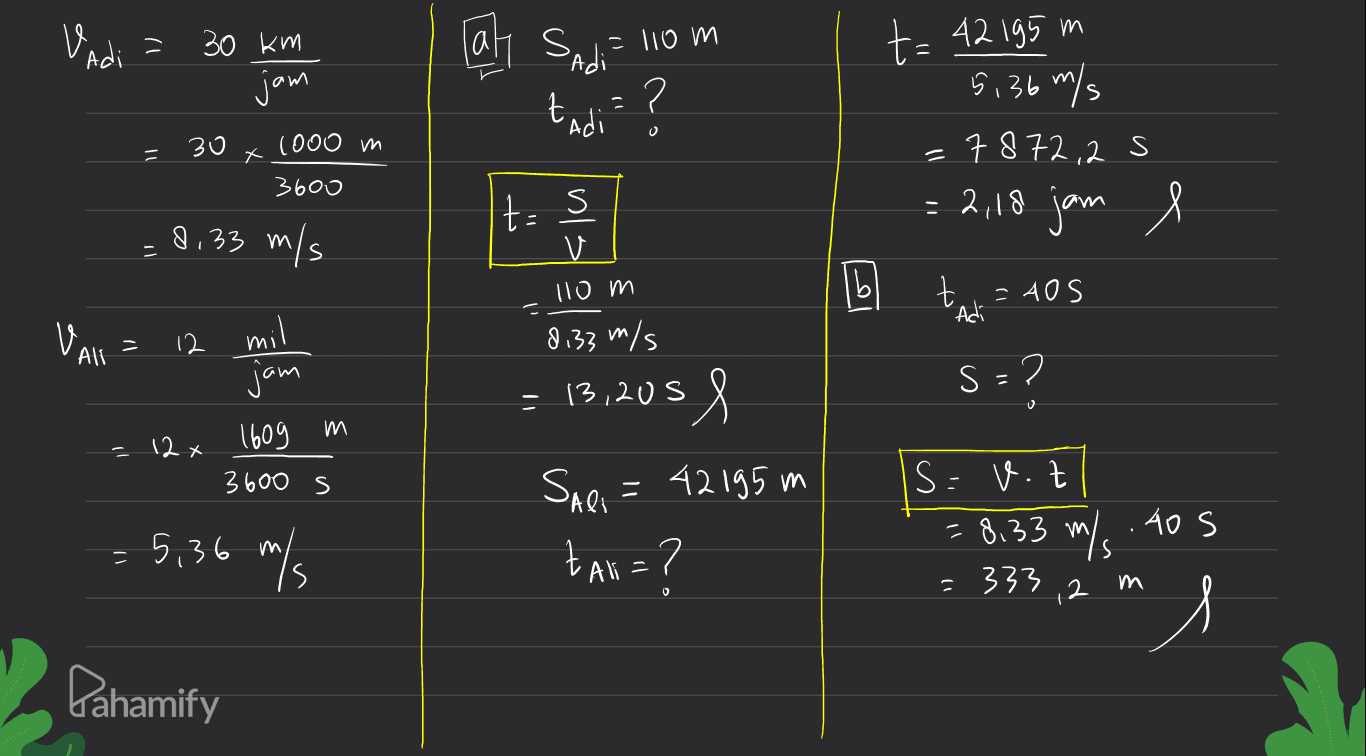 V Adi = 30 km
jam
= 30 x 1000 m
3600
= 8,33 m/s
V Ali = 12 mil
jam
= 12 x 1609 m
3600 s
= 5,36 m/s
a) S Adi = 110 m
t Adi = ?
t = S
V
= 110 m
8,33 m/s
= 13,20 s
S Ali = 42195 m
t Ali = ?
t = 42195 m
5,36 m/s
= 7872,2 s
= 2,18 jam
b t Adi = 40 s
S = ?
S = V . t
= 8,33 m/s . 40 s
= 333,2 m
Pahamify